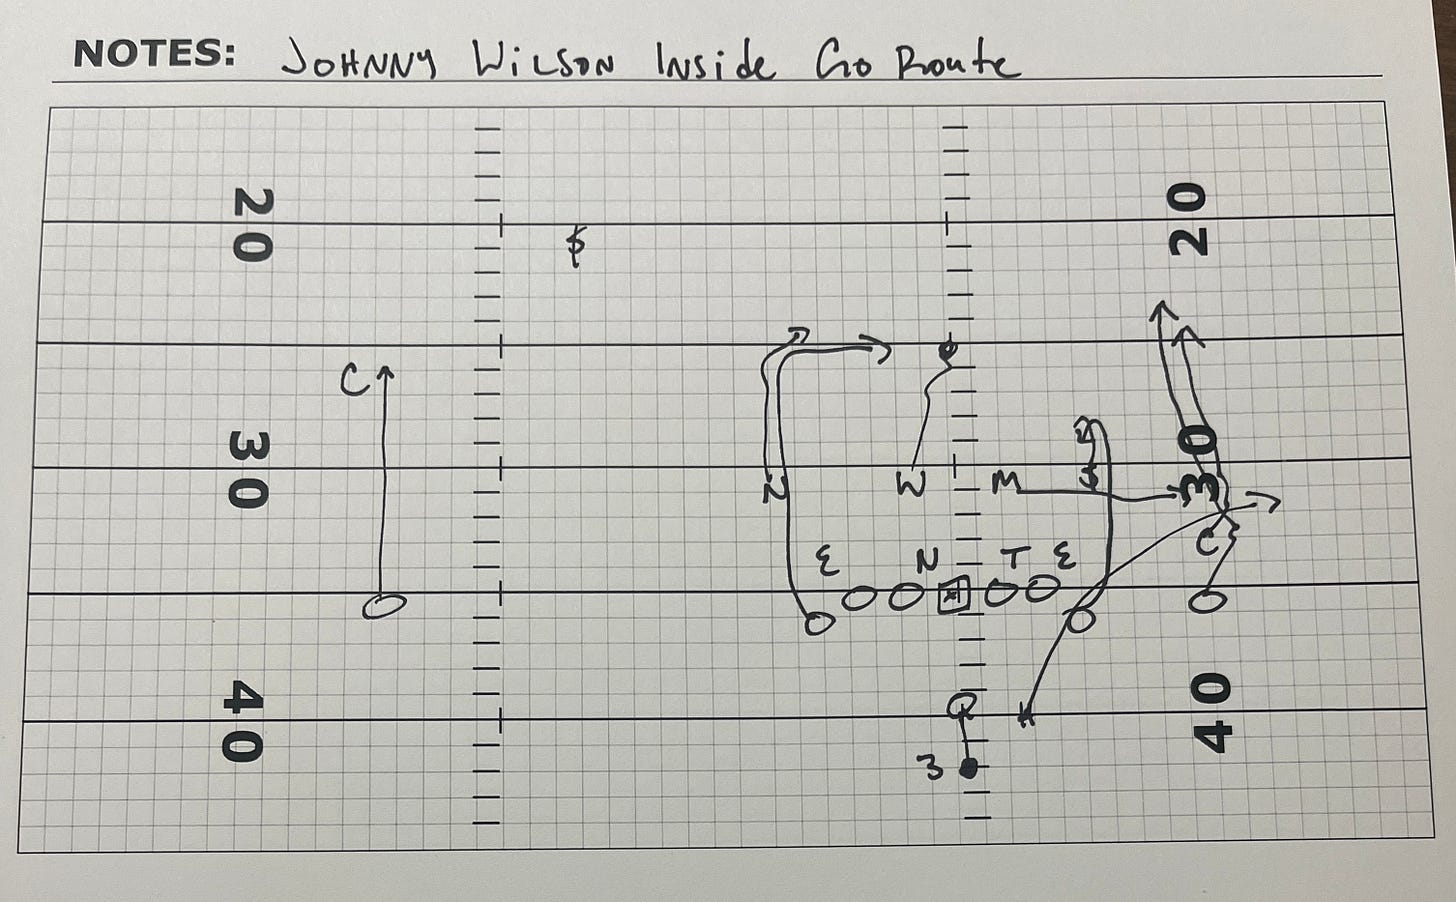 NOTES: JOHNNY WILSON INSIDE GO ROUTE
20 20
$
C
30 30
N W M $
C
E N T E
40 Q H 40
3